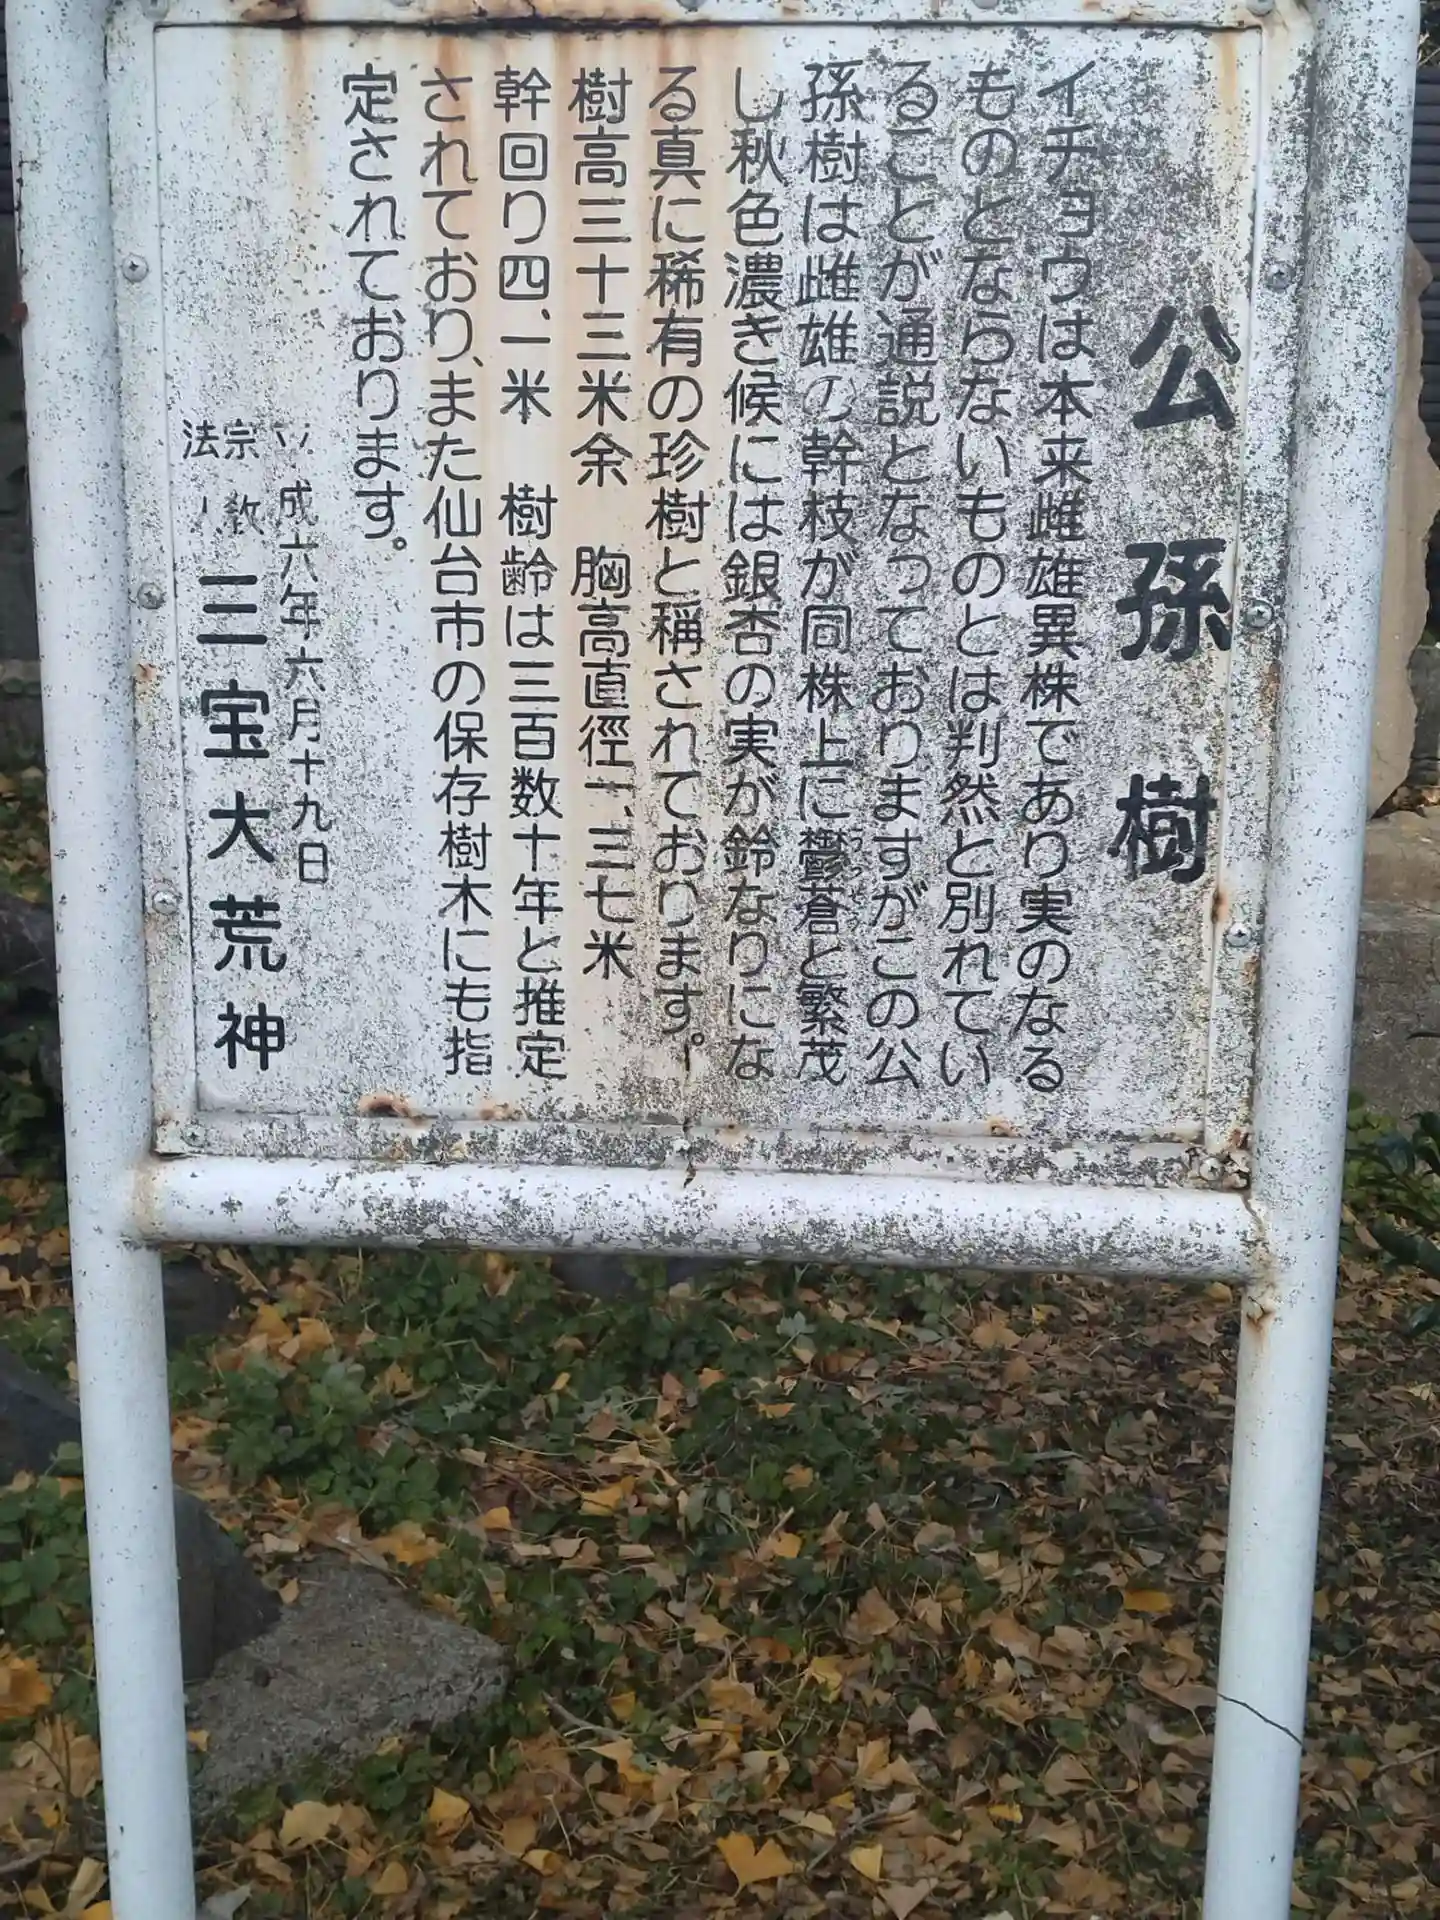 公孫樹
イチョウは本来雌雄異株であり実のなる
ものとならないものとは判然と別れてい
ることが通説となっておりますがこの公
孫樹は雌雄の幹枝が同株上に鬱蒼と繁茂
し秋色濃き候には銀杏の実が鈴なりにな
る真に稀有の珍樹と称されております。
樹高三十三米余 胸高直徑一、三七米
幹回り四、一米 樹齢は三百数十年と推定
されており、また仙台市の保存樹木にも指
定されております。
成六年六月十九日
宗教
法人
三宝大荒神